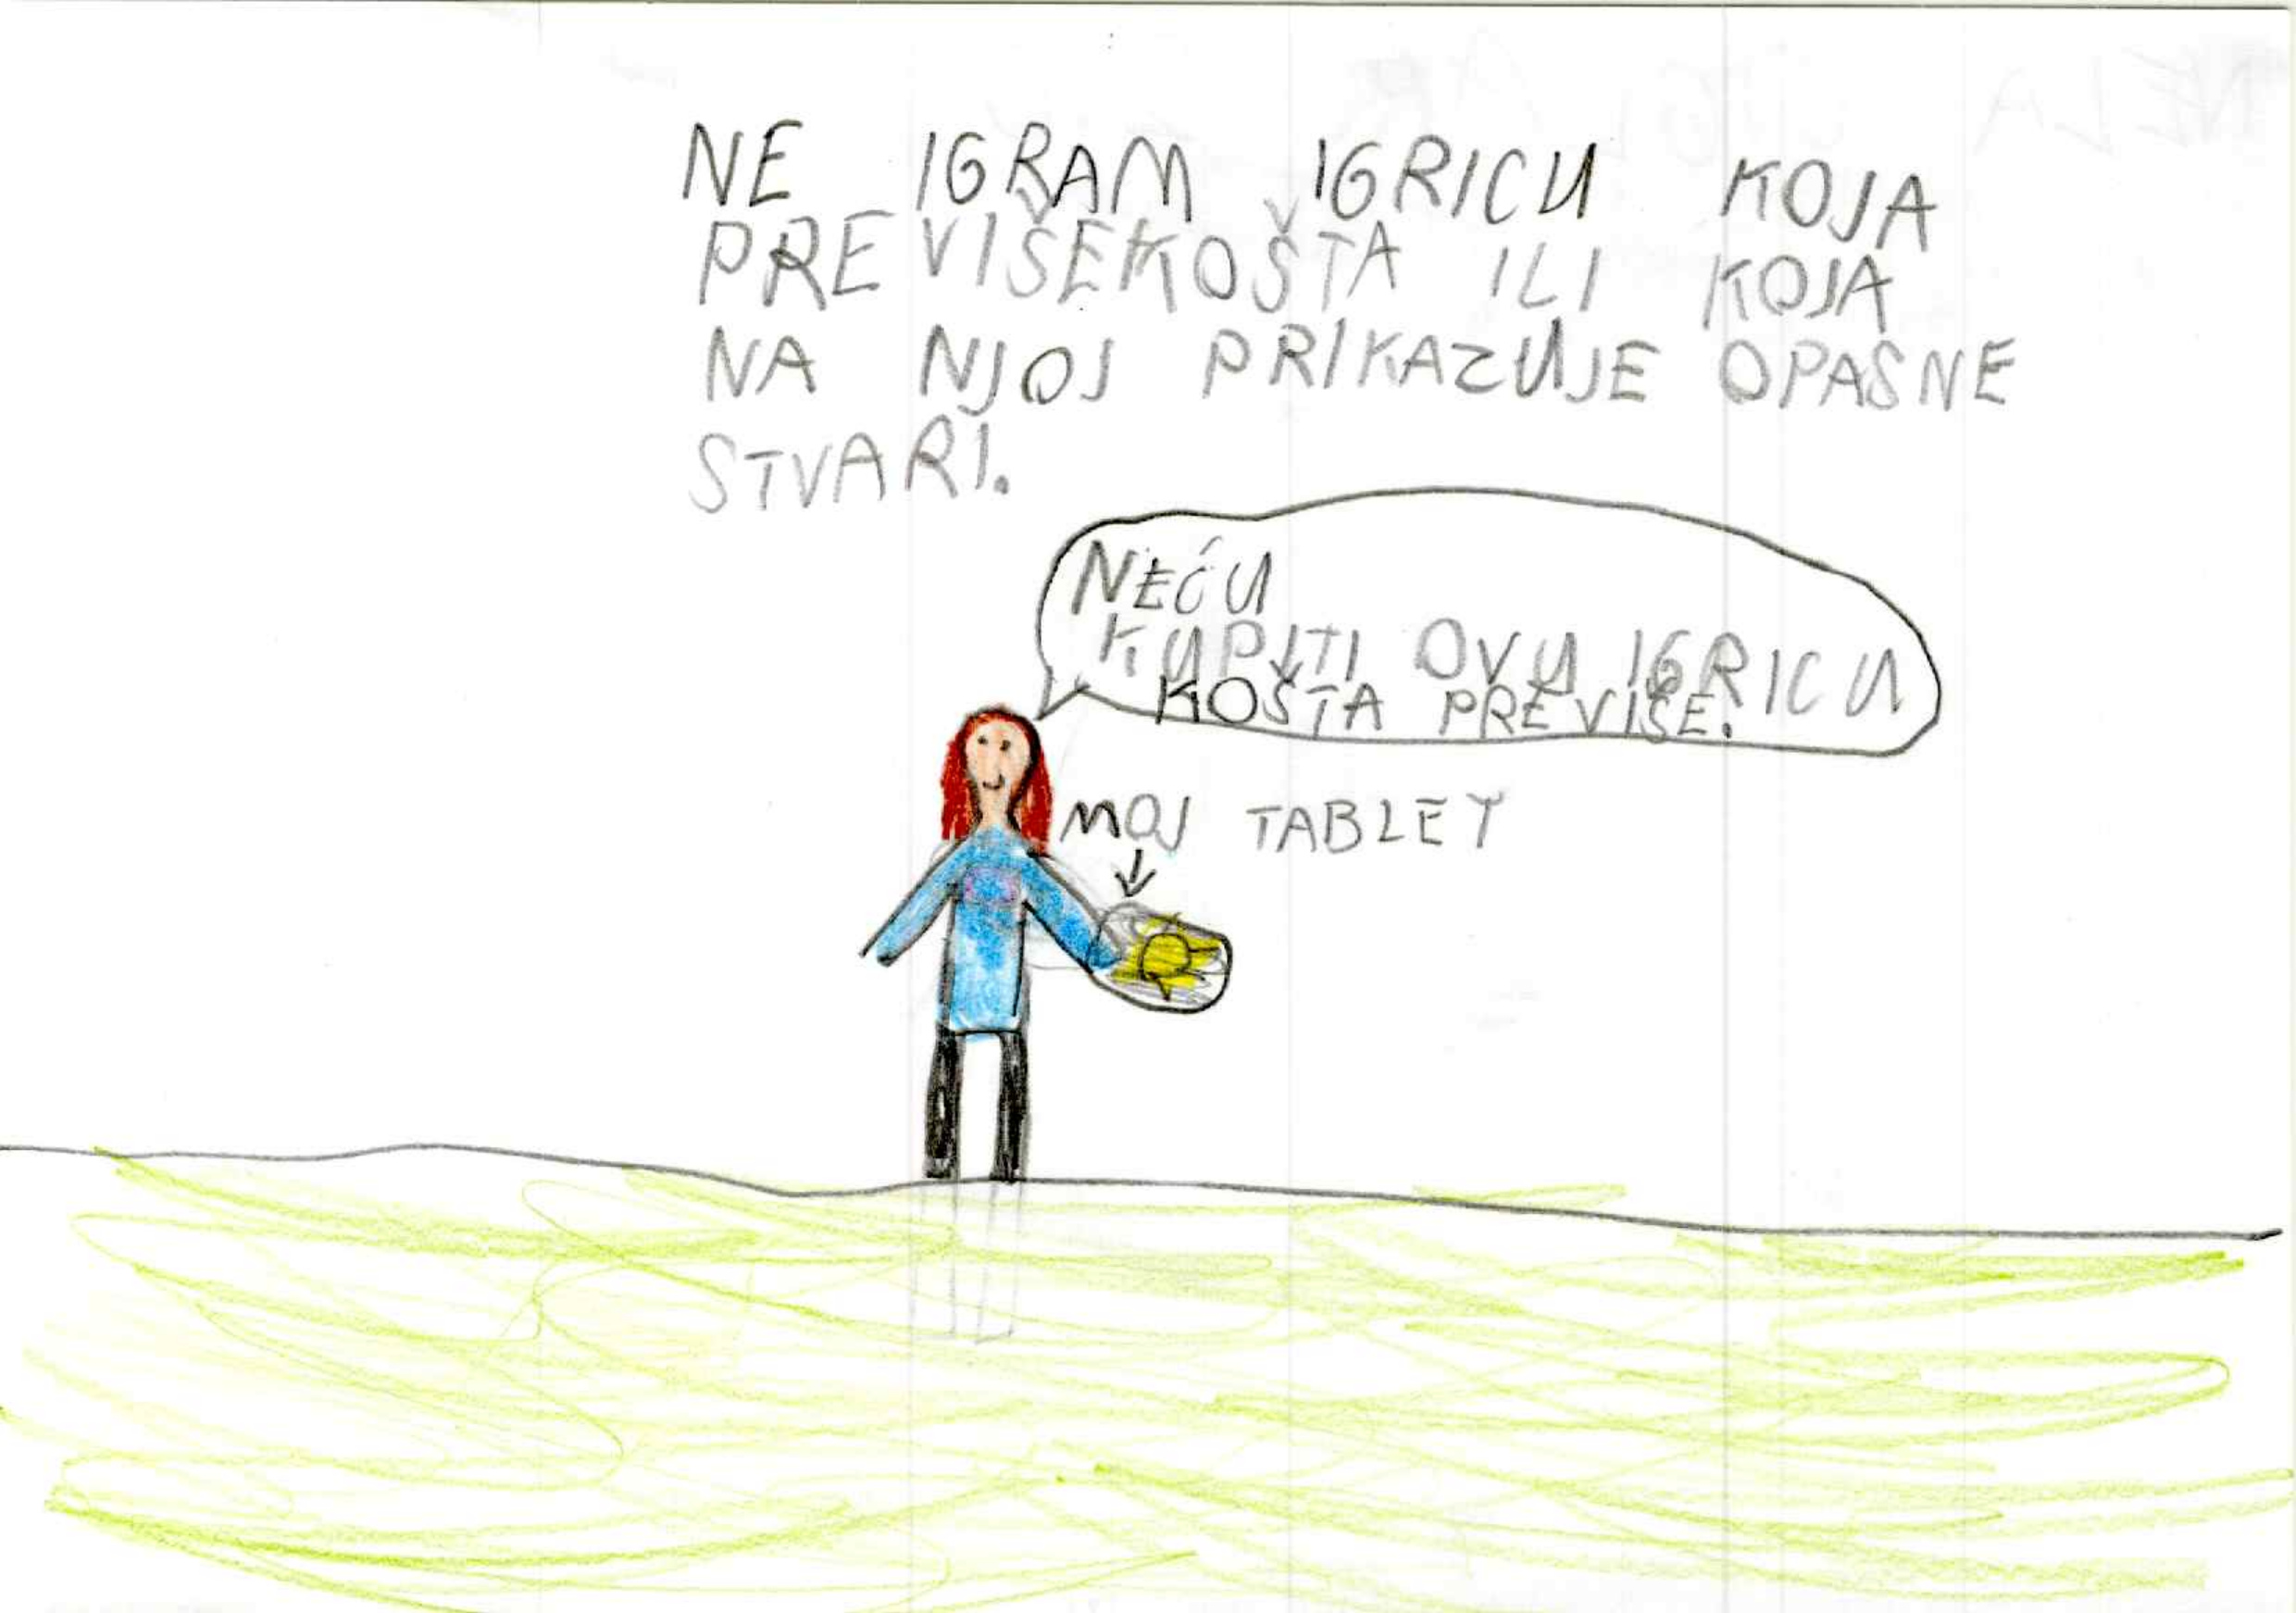 NE IGRAM IGRICU KOJA
PREVIŠEKOŠTA ILI KOJA
NA NJOJ PRIKAZUJE OPASNE
STVARI.
NEĆU
KUPITI OVU IGRICU
KOŠTA PREVIŠE.
MOJ TABLET